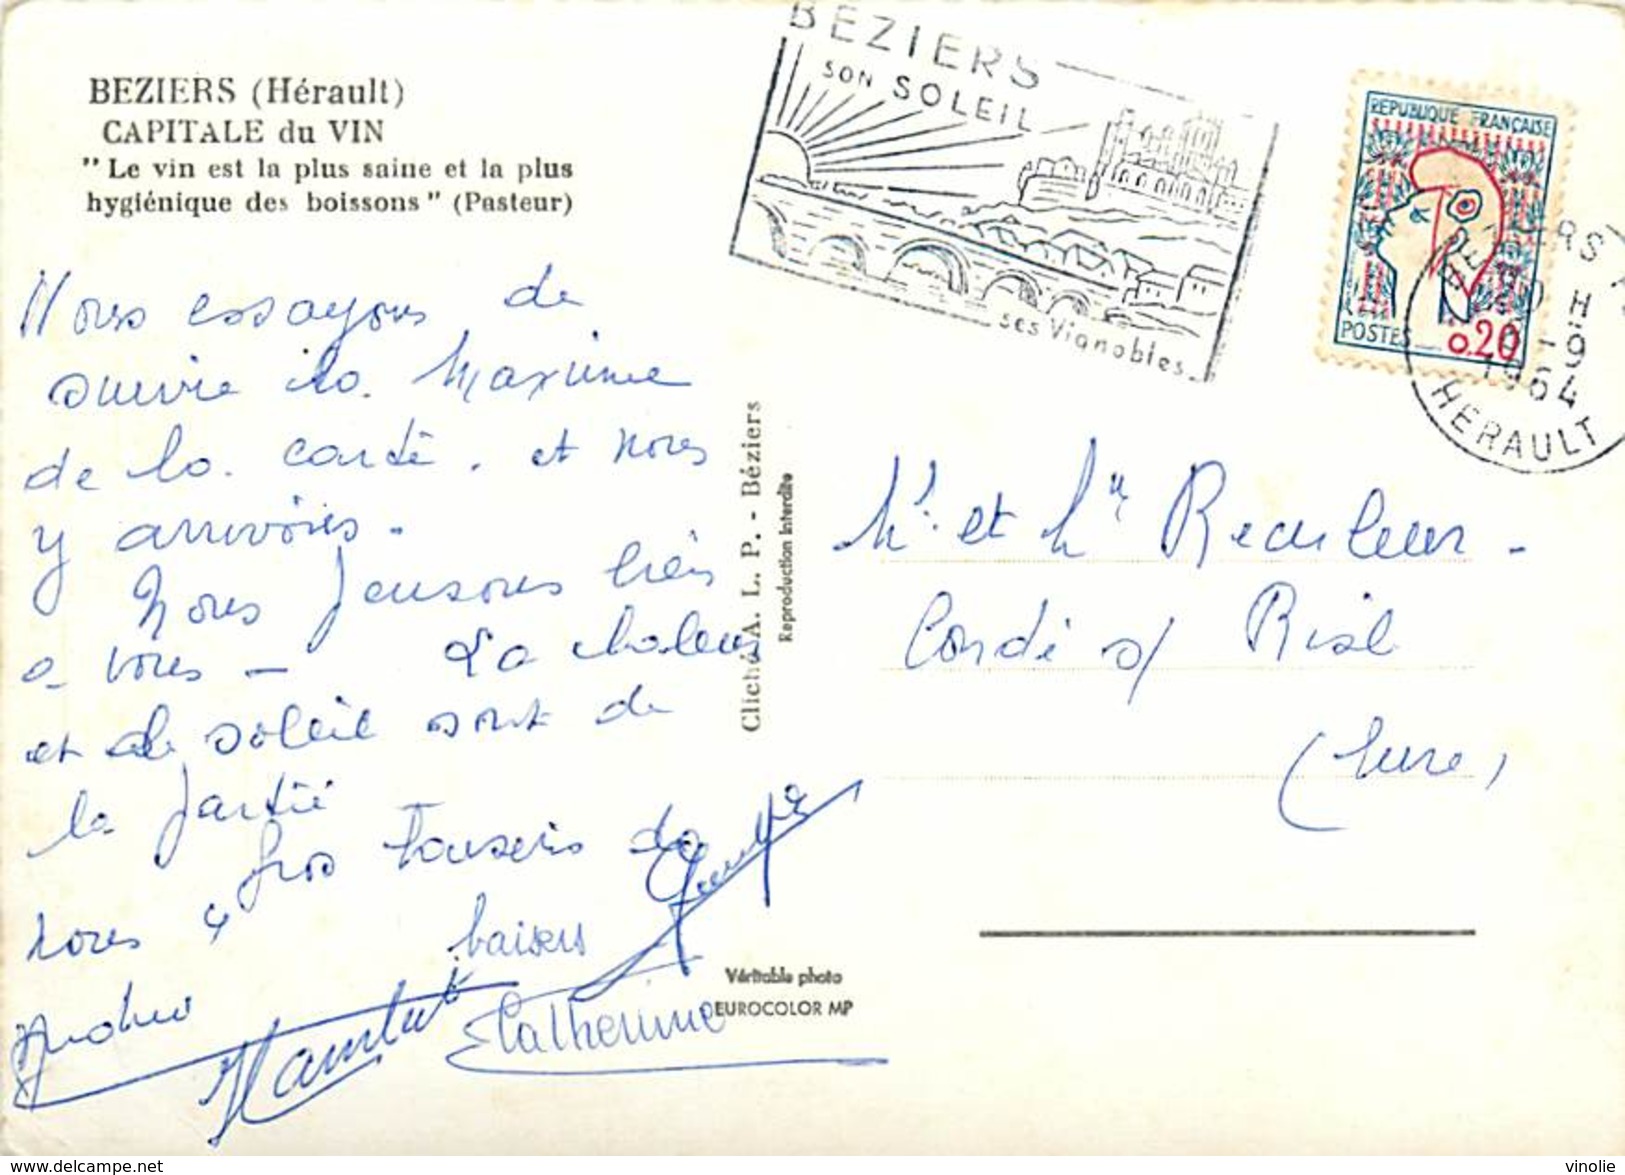 BEZIERS (Hérault)
CAPITALE du VIN
"Le vin est la plus saine et la plus
hygiénique des boissons" (Pasteur)
BEZIERS
SON SOLEIL
ses Vignobles
REPUBLIQUE FRANÇAISE
POSTES
0.20
BEZIERS
H
-9
1964
HERAULT
Nous essayons de
suivre la Maxime
de la carte. et nous
y arrivons.
Nous pensons bien
a vous - La chaleur
et le soleil sont de
la partie
Gros baisers de
nous 4
baisers
Catherine
Cliché A. L. P. - Béziers
Reproduction interdite
Véritable photo
EUROCOLOR MP
Mr et Mme
Condé s/ Risle
(Eure)
delcampe.net
vinolie